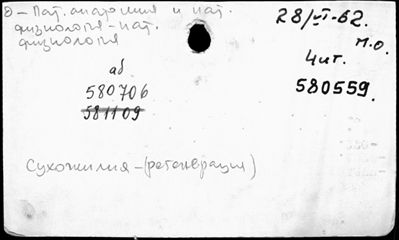 д – Пат. анатомия и пат.
физиология – пат.
физиология
28/VI-62.
м.о.
Чит.
580559.
аб
580706
581109
Сухожилия – (регенерация)